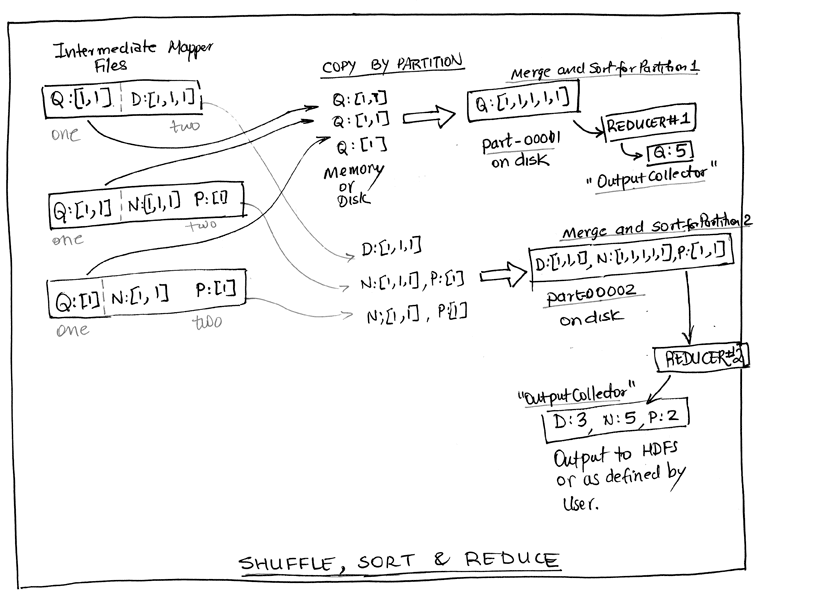 Intermediate Mapper
Files
Q:[1,1] D:[1,1,1]
one two
Q:[1,1] N:[1,1,1] P:[1]
one two
Q:[1] N:[1,1] P:[1]
one two
COPY BY PARTITION
Q:[1,1]
Q:[1,1]
Q:[1]
Memory
or
Disk
D:[1,1,1]
N:[1,1,1], P:[1]
N:[1,1], P:[1]
Merge and Sort for Partition 1
Q:[1,1,1,1,1]
part-00001
on disk
REDUCER#1
Q:5
"Output Collector"
Merge and Sort for Partition 2
D:[1,1,1], N:[1,1,1,1,1], P:[1,1]
part-00002
on disk
REDUCER#2
"Output Collector"
D:3, N:5, P:2
Output to HDFS
or as defined by
User.
SHUFFLE, SORT & REDUCE